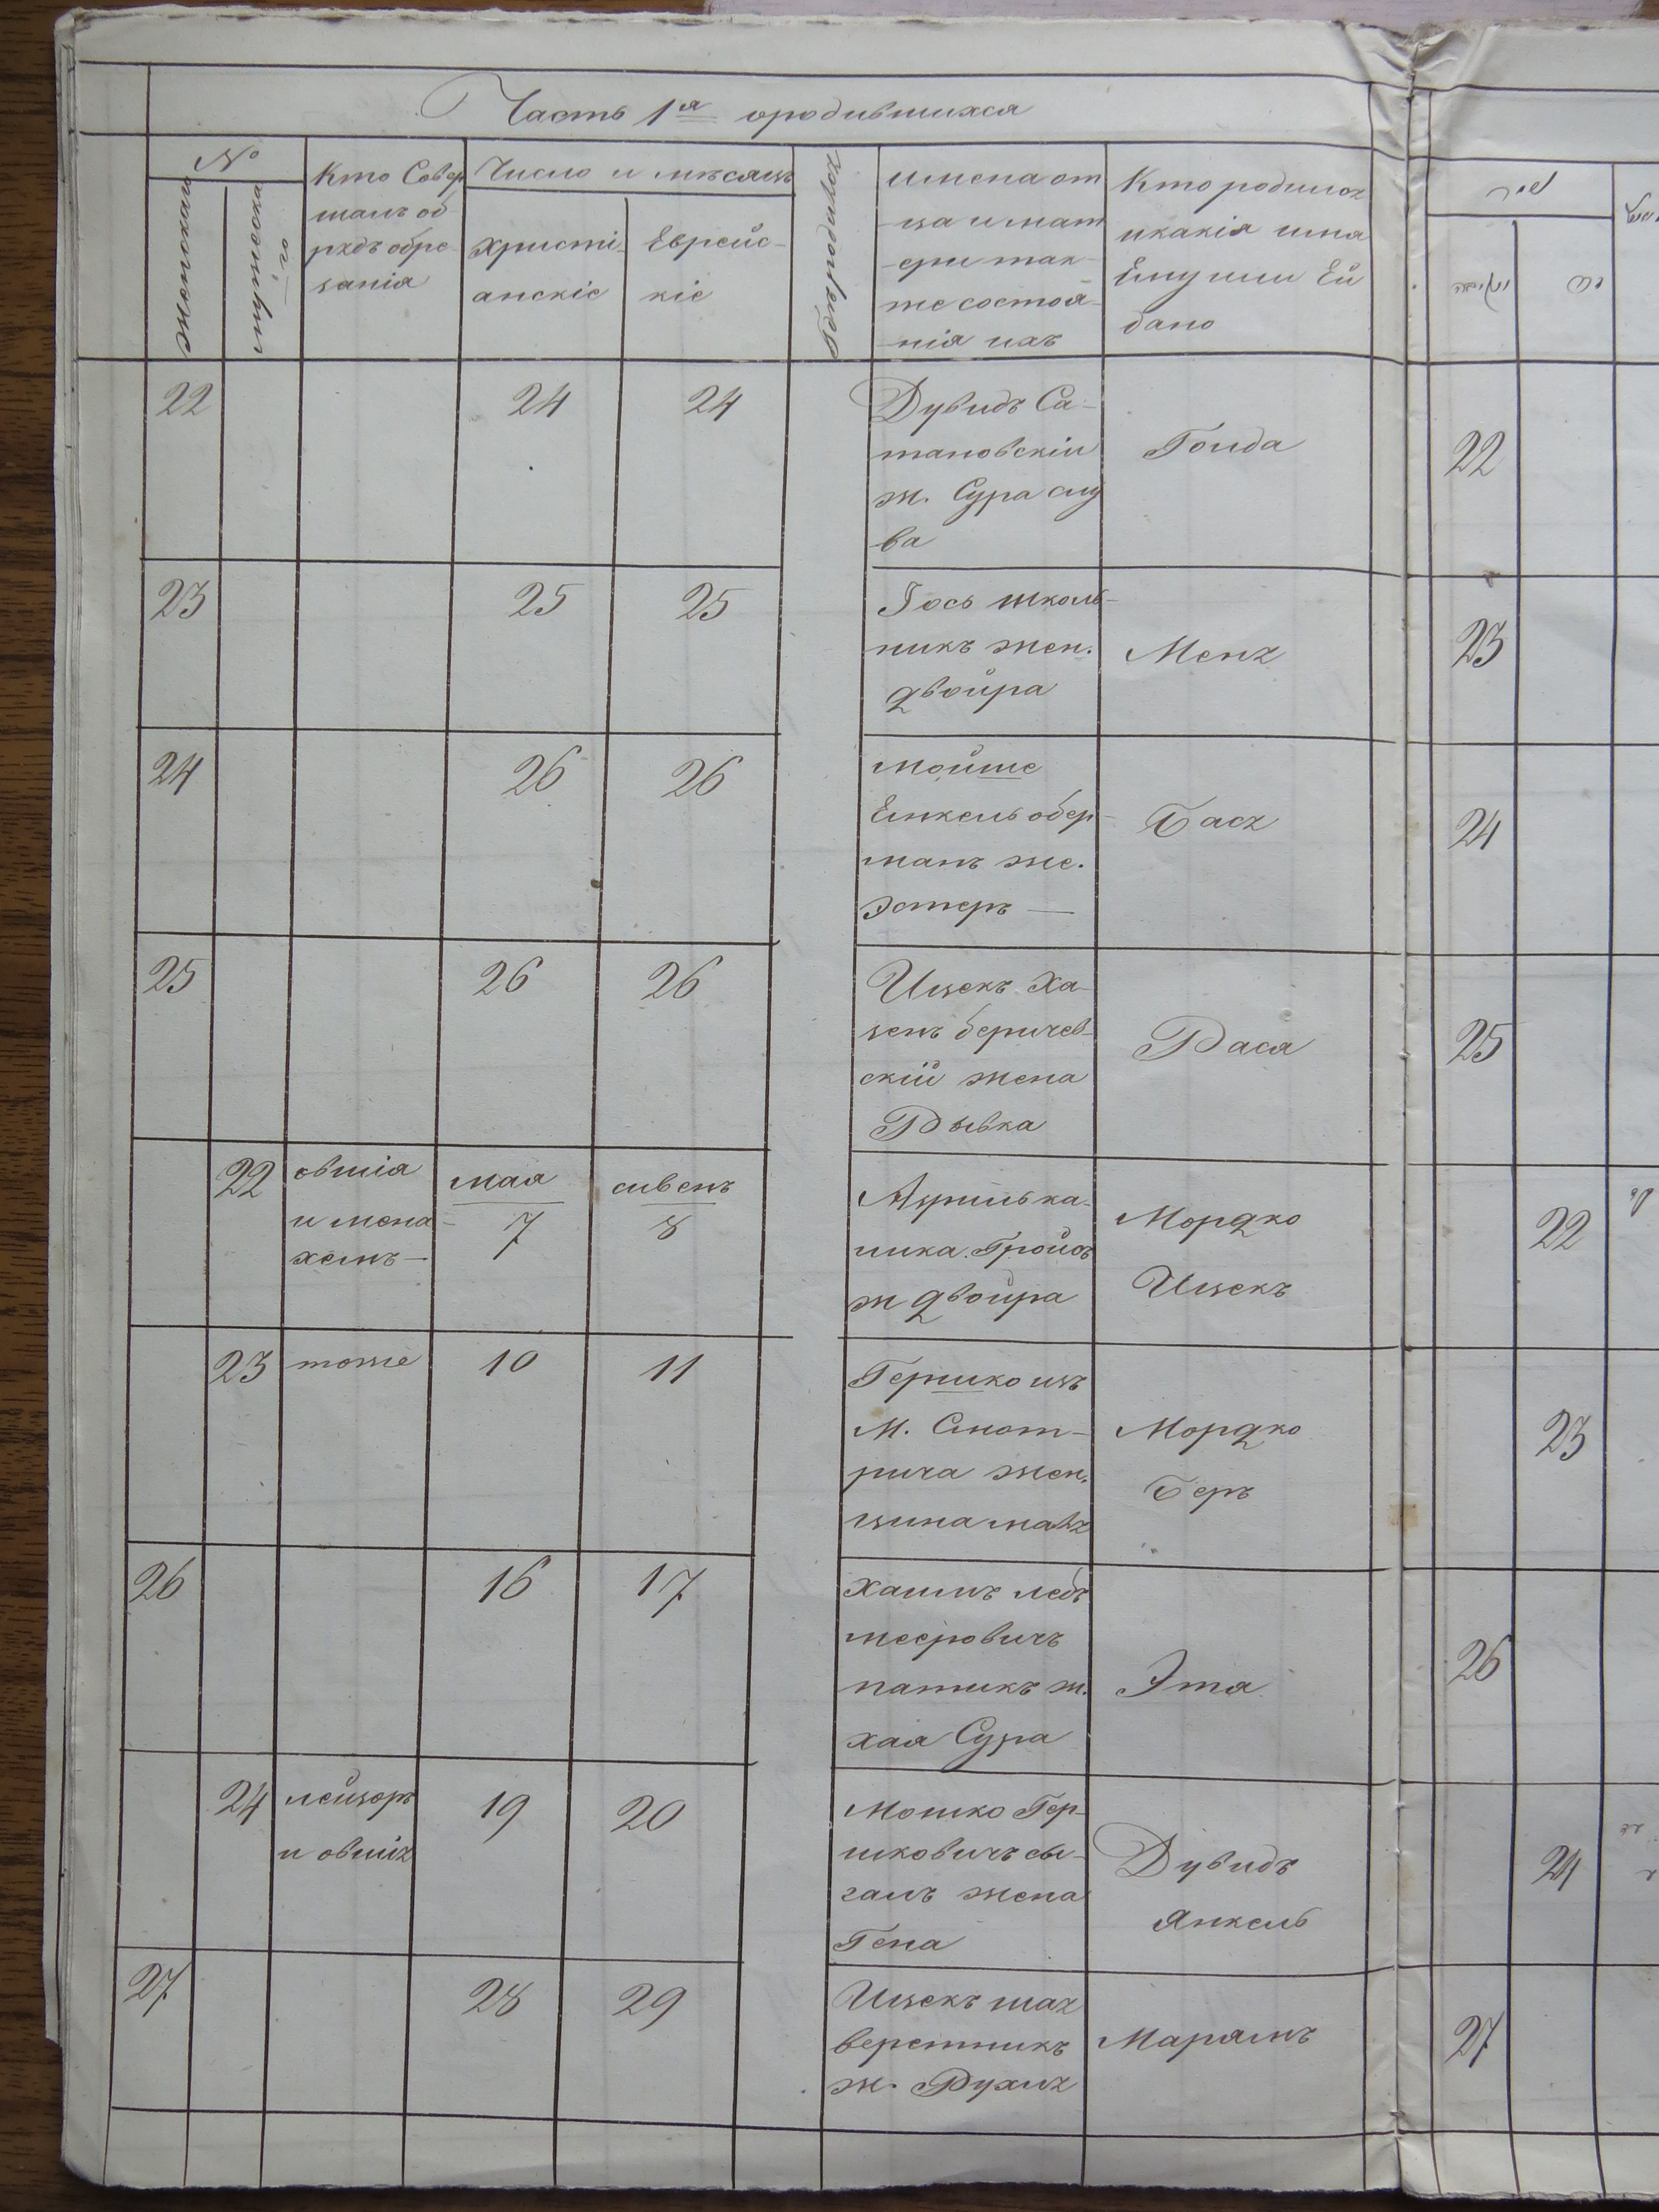 Часть 1я ородившихся
№
женского
мужескаго
Кто Совер
шалъ об
рядъ обре-
занія
Число и мѣсяцъ
Христі-
анскіе
Еврейс-
кіе
Гдѣ родился
имена от
-ца и мат
-ери так-
же состоя-
нія ихъ
Кто родился
икакія имя
Ему или Ей
дано
22 24 24
Дувидъ Са-
тановскіи
ж. Сура слу
ва
Гоида
22
23 25 25
Іось школь-
никъ жен.
двойра
Меня
23
24 26 26
мойше
Енкель обер-
манъ же.
Эстеръ —
Бася
24
25 26 26
Ицекъ Ха-
зенъ беричев-
скій жена
Рывка
Рася
25
22
овшія
и мена-
хемъ —
мая
7
сивенъ
8
Азрилька-
цика. Гройсъ
ж двойра
Мордко
Ицекъ
22
23 тоже 10 11
Гершко изъ
М. Смот-
рича жен.
Мордко
Беръ
23
26 16 17
Хаимъ лебъ
мееровичъ
патикъ ж.
хая Сура
Эта
26
24
лейзоръ
и овшія
19 20
Мошко Гер-
шковичъ сы-
галъ жена
Гена
Дувидъ
Янкель
24
27 28 29
Ицекъ шая
веретникъ
ж. Рухля
Марямъ
27